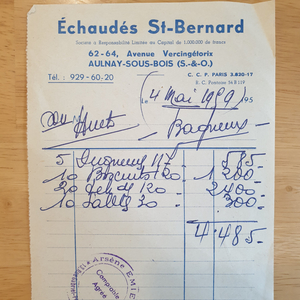 Échaudés St-Bernard
Société à Responsabilité Limitée au Capital de 1.000.000 de francs
62-64, Avenue Vercingétorix
AULNAY-SOUS-BOIS (S.-&-O.)
Tél. : 929-60-20
C. C. P. PARIS 3.820-17
Le 4 Mai 1959 195
Bagneux
5 117 585-
10 Biscuits 120 1 200-
20 120 2 400-
10 Sablés 30 300-
4.485-
Arsène
Comptable
Agréé